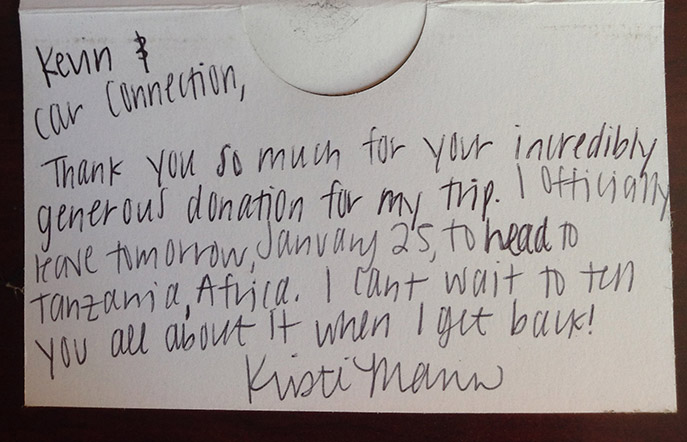 Kevin &
Car Connection,
Thank you so much for your incredibly
generous donation for my trip. I officially
leave tomorrow, January 25, to head to
Tanzania, Africa. I can't wait to tell
you all about it when I get back!
Kristi Mann